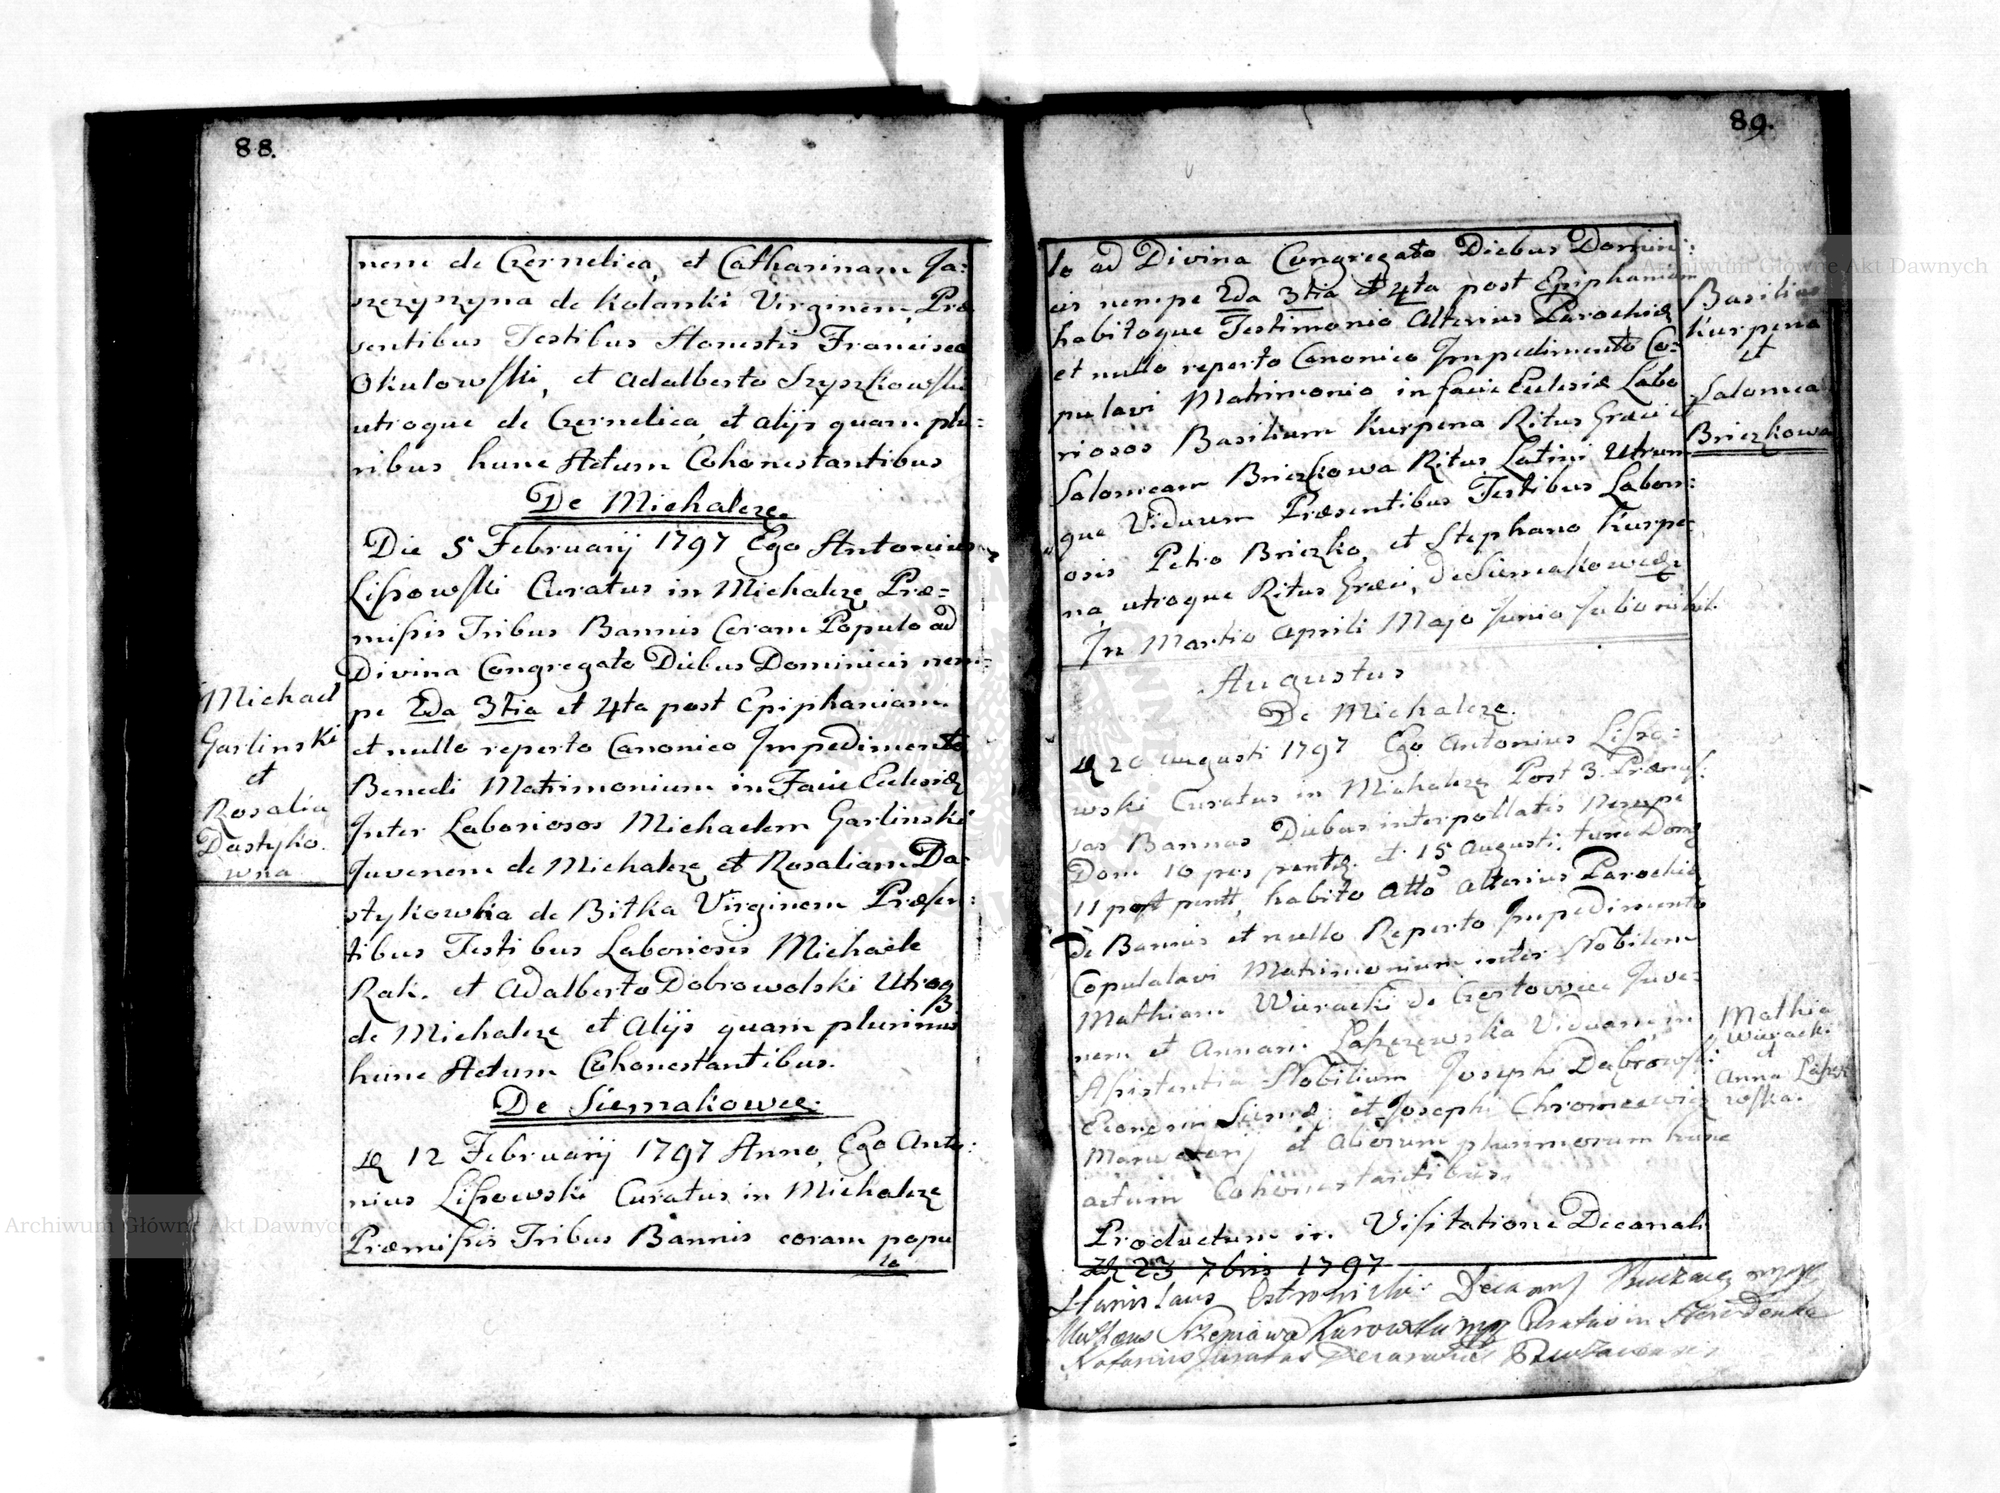 88.
nem de Czernelica, et Catharinam Ja=
szczyszyna de Kolanki Virginem, Præ
sentibus Testibus Honestis Francisco
Okulowski, et Adalberto Szyszkowski
utroque de Czernelica, et alijs quam plu=
ribus hunc Actum Cohonestantibus
De Michalcze.
Die 5 Februarij 1797 Ego Antonius
Lissowski Curatus in Michalcze Præ=
missis Tribus Bannis Coram Populo ad
Divina Congregato Diebus Dominicis nem=
pe 2da 3tia et 4ta post Epiphaniam
et nullo reperto Canonico Impedimento
Benedi Matrimonium in Facie Eclesiæ
Inter Laboriosos Michaelem Garlinski
Juvenem de Michalcze et Rosaliam Da=
stykowka de Bitka Virginem Præsen=
tibus Testibus Laboriosis Michaele
Rak. et Adalberto Dobrowolski Utroq
de Michalcze et Alijs quam plurimis
hunc Actum Cohonestantibus.
De Siemakowce.
12 Februarij 1797 Anno, Ego Anto=
nius Lissowski Curatus in Michalcze
Præmissis Tribus Bannis coram popu
lo
Michael
Garlinski
et
Rosalia
Dastyko.
wna
89.
lo ad Divina Congregato Diebus Domini=
cis nempe 2da 3tia et 4ta post Epiphaniam
habitoque Testimonio Alterius Parochiæ
et nullo reperto Canonico Impedimento Co=
pulavi Matrimonio in facie Eclesiæ Labo
riosos Basilium Kurpena Ritus Græci et
Salomeam Briczkowa Ritus Latini Utrum
que Viduum Præsentibus Testibus Labori=
osis Petro Briczko, et Stephano Kurpe=
na, utroque Ritus Græci, de Siemakowcze
In Martio Aprili Majo Junio Julio nihil.
Augustus
De Michalcze.
20 Augusti 1797 Ego Antonius Lisso=
wski Curatus in Michalcze Post 3. Præmis=
sas Bannas Diebus interpollatis Nempe
Dom 10 et 15 Augusti: tum Dom
11 post pentt, habito Atto Alterius Parochiæ
de Bannis et nullo Reperto Impedimento
Copulalavi Matrimonium inter Nobilem
Mathiam Wieracki de Juve=
nem et Annam Viduam in
Assistentia Nobilium Josephi Dąbrowski
et Josephi Chromcewicz
et Aliorum plurimorum hunc
actum Cohonestantibus.
Productum in Visitatione Decanali
23 7bris 1797
Stanislaus Decanus
Curatus in Horodenka
Notarius Juratus
Basilius
Kurpena
et
Salomea
Briczkowa
Mathia
Wieracki
et
Anna
wska.
Archiwum Główne Akt Dawnych
Archiwum Główne Akt Dawnych